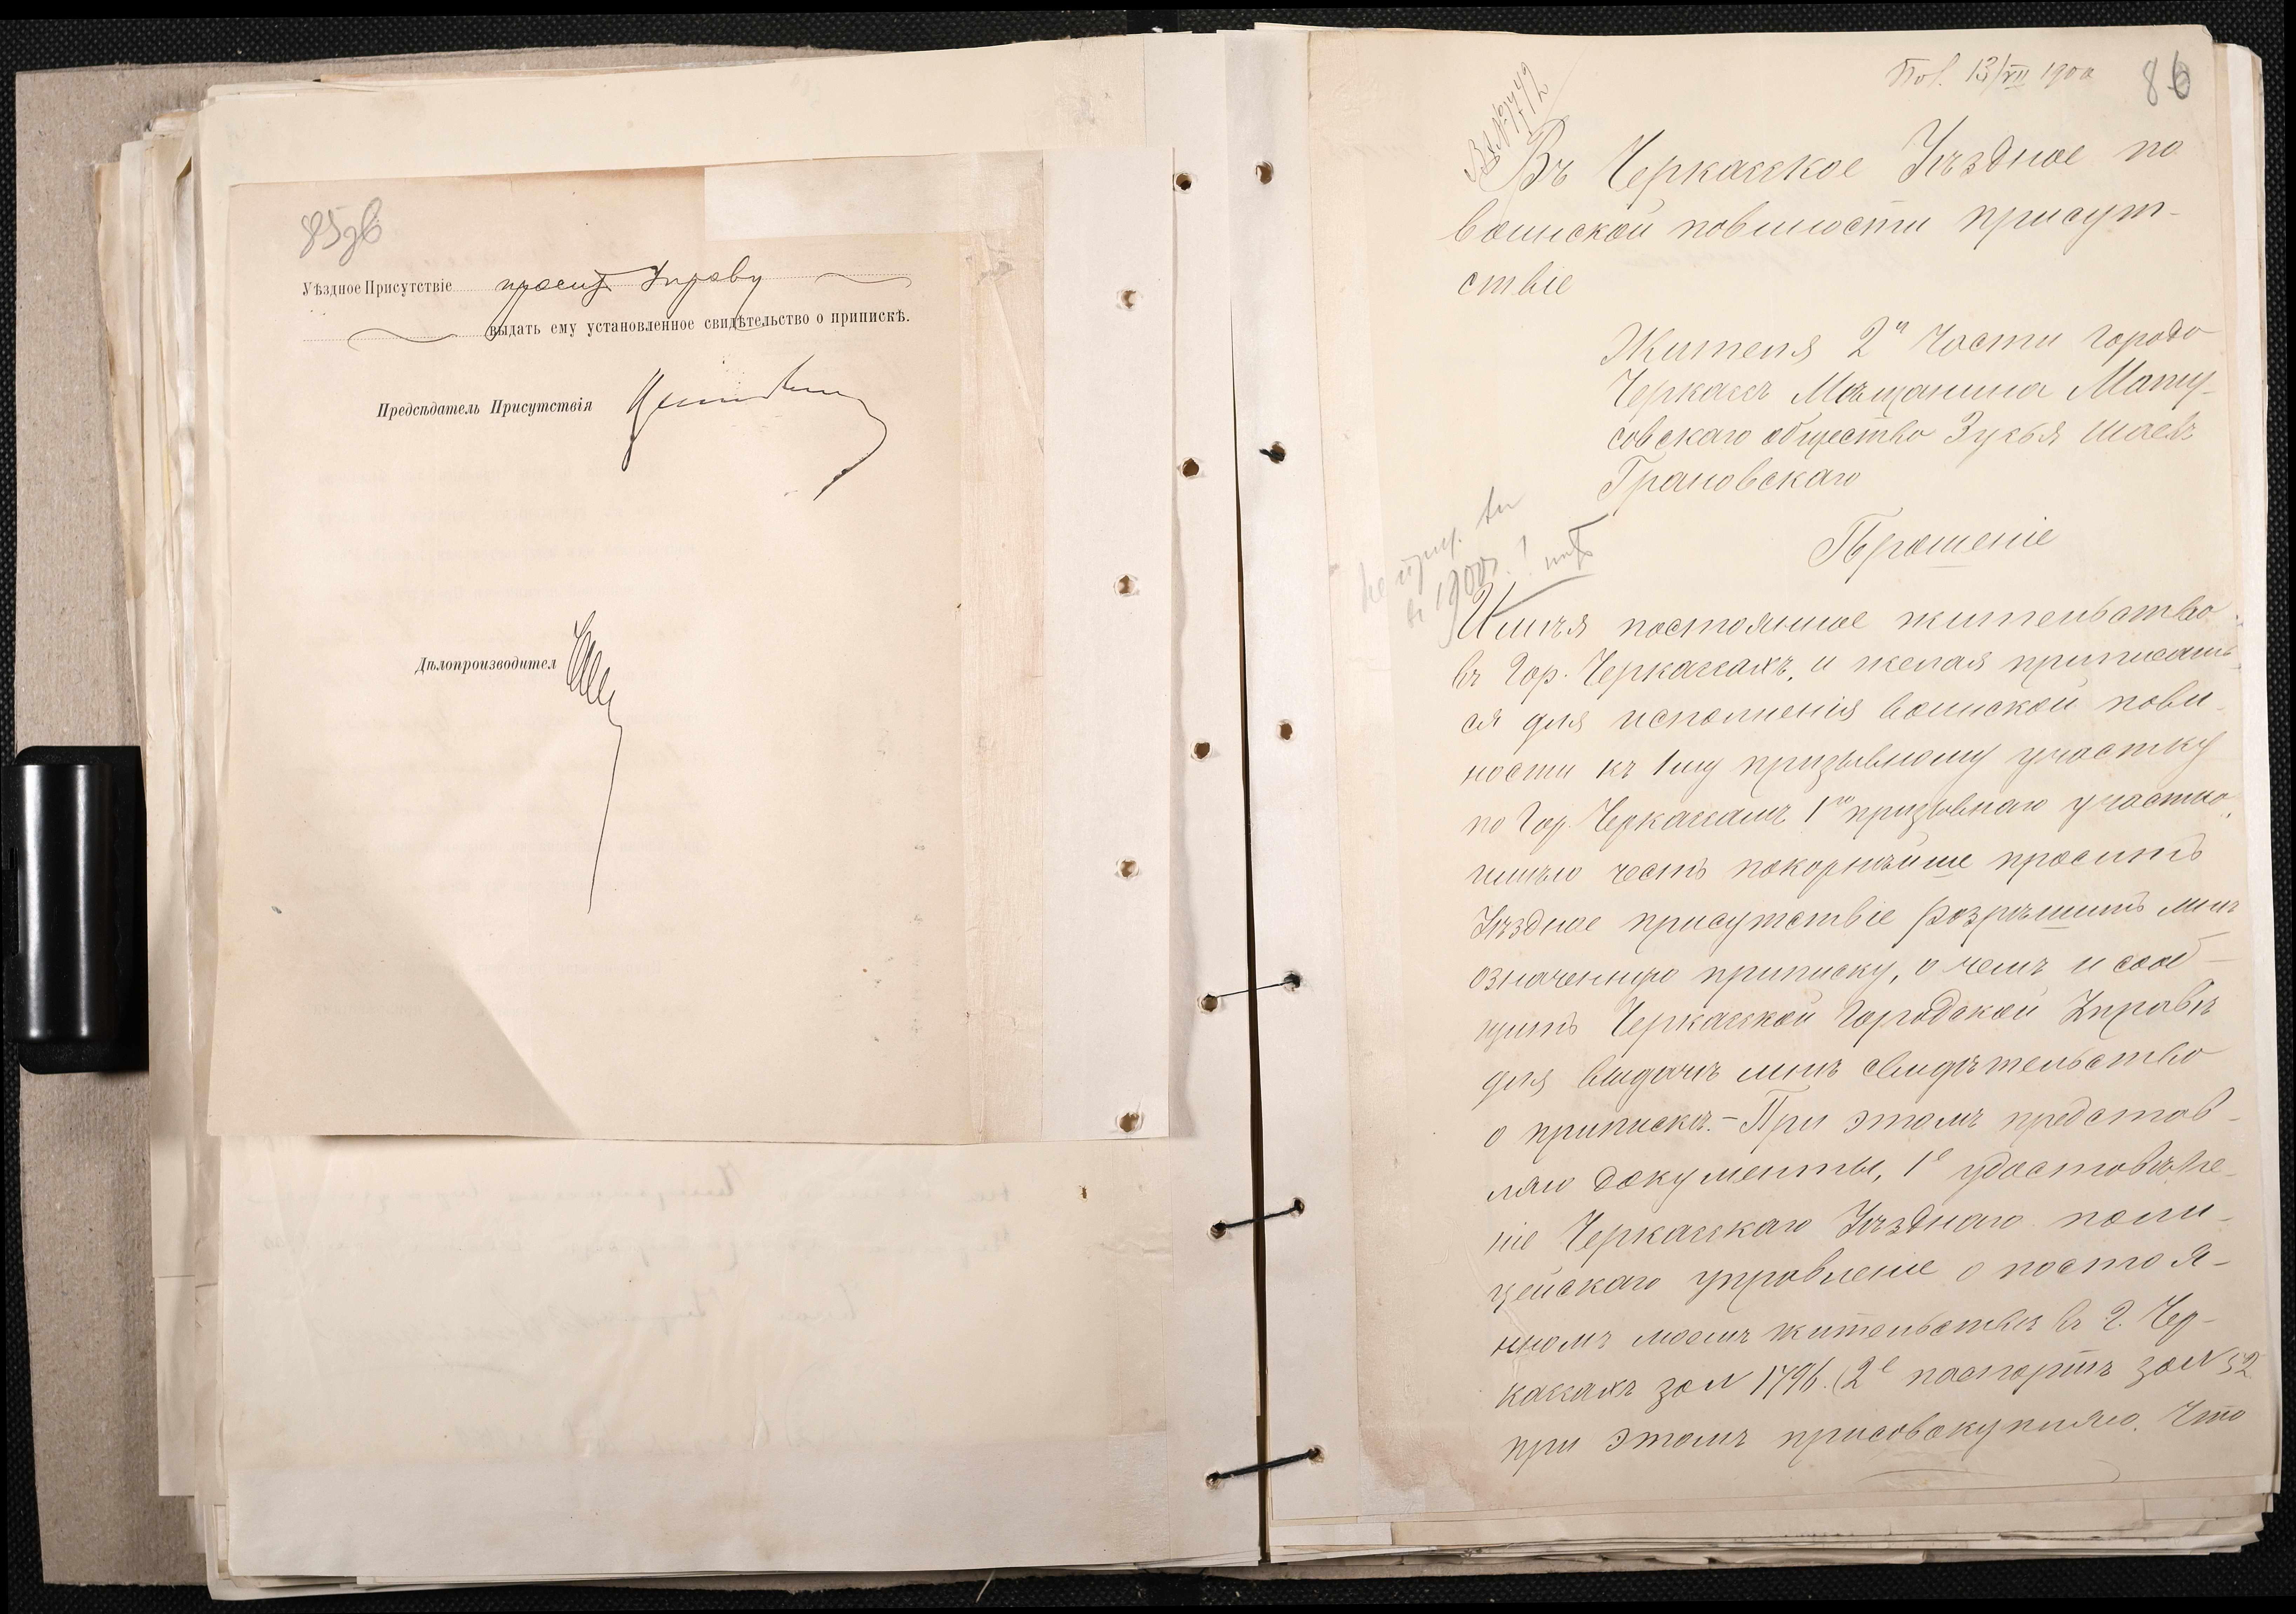 85зв
Уѣздное Присутствіе проситъ Управу
выдать ему установленное свидѣтельство о припискѣ.
Предсѣдатель Присутствія
Дѣлопроизводител
Пол. 13/VII 1900
86
Въ Черкасское Уѣздное по
воинской повиности присут-
ствіе
Жителя 2й части города
Черкассъ Мѣщанина Мату-
совскаго общества Зуся Шаевъ
Грановскаго
Прошеніе
въ 1900 г.!
Имѣя постоянное жительство
въ Гор. Черкассахъ, и желая приписать
ся для исполненія воинской пови-
ности къ 1му призывному участку
по Гор. Черкассамъ 1го призывнаго участка,
имѣю честь покорнѣйше просить
Уѣздное присутствіе розрѣшить мнѣ
означенную приписку, о чемъ и сооб-
щить Черкасской Городской Управѣ
для выдачѣ мнѣ свидѣтельство
о припискѣ.- При этомъ представ-
ляю документы, 1е удостовѣре-
ніе Черкасскаго Уѣзднаго поли-
цейскаго управленіе о постоя-
нномъ моемъ жительствѣ въ г. Чер-
кассахъ за № 1796. (2е паспортъ за № 52
при этомъ присовокупляю. Что